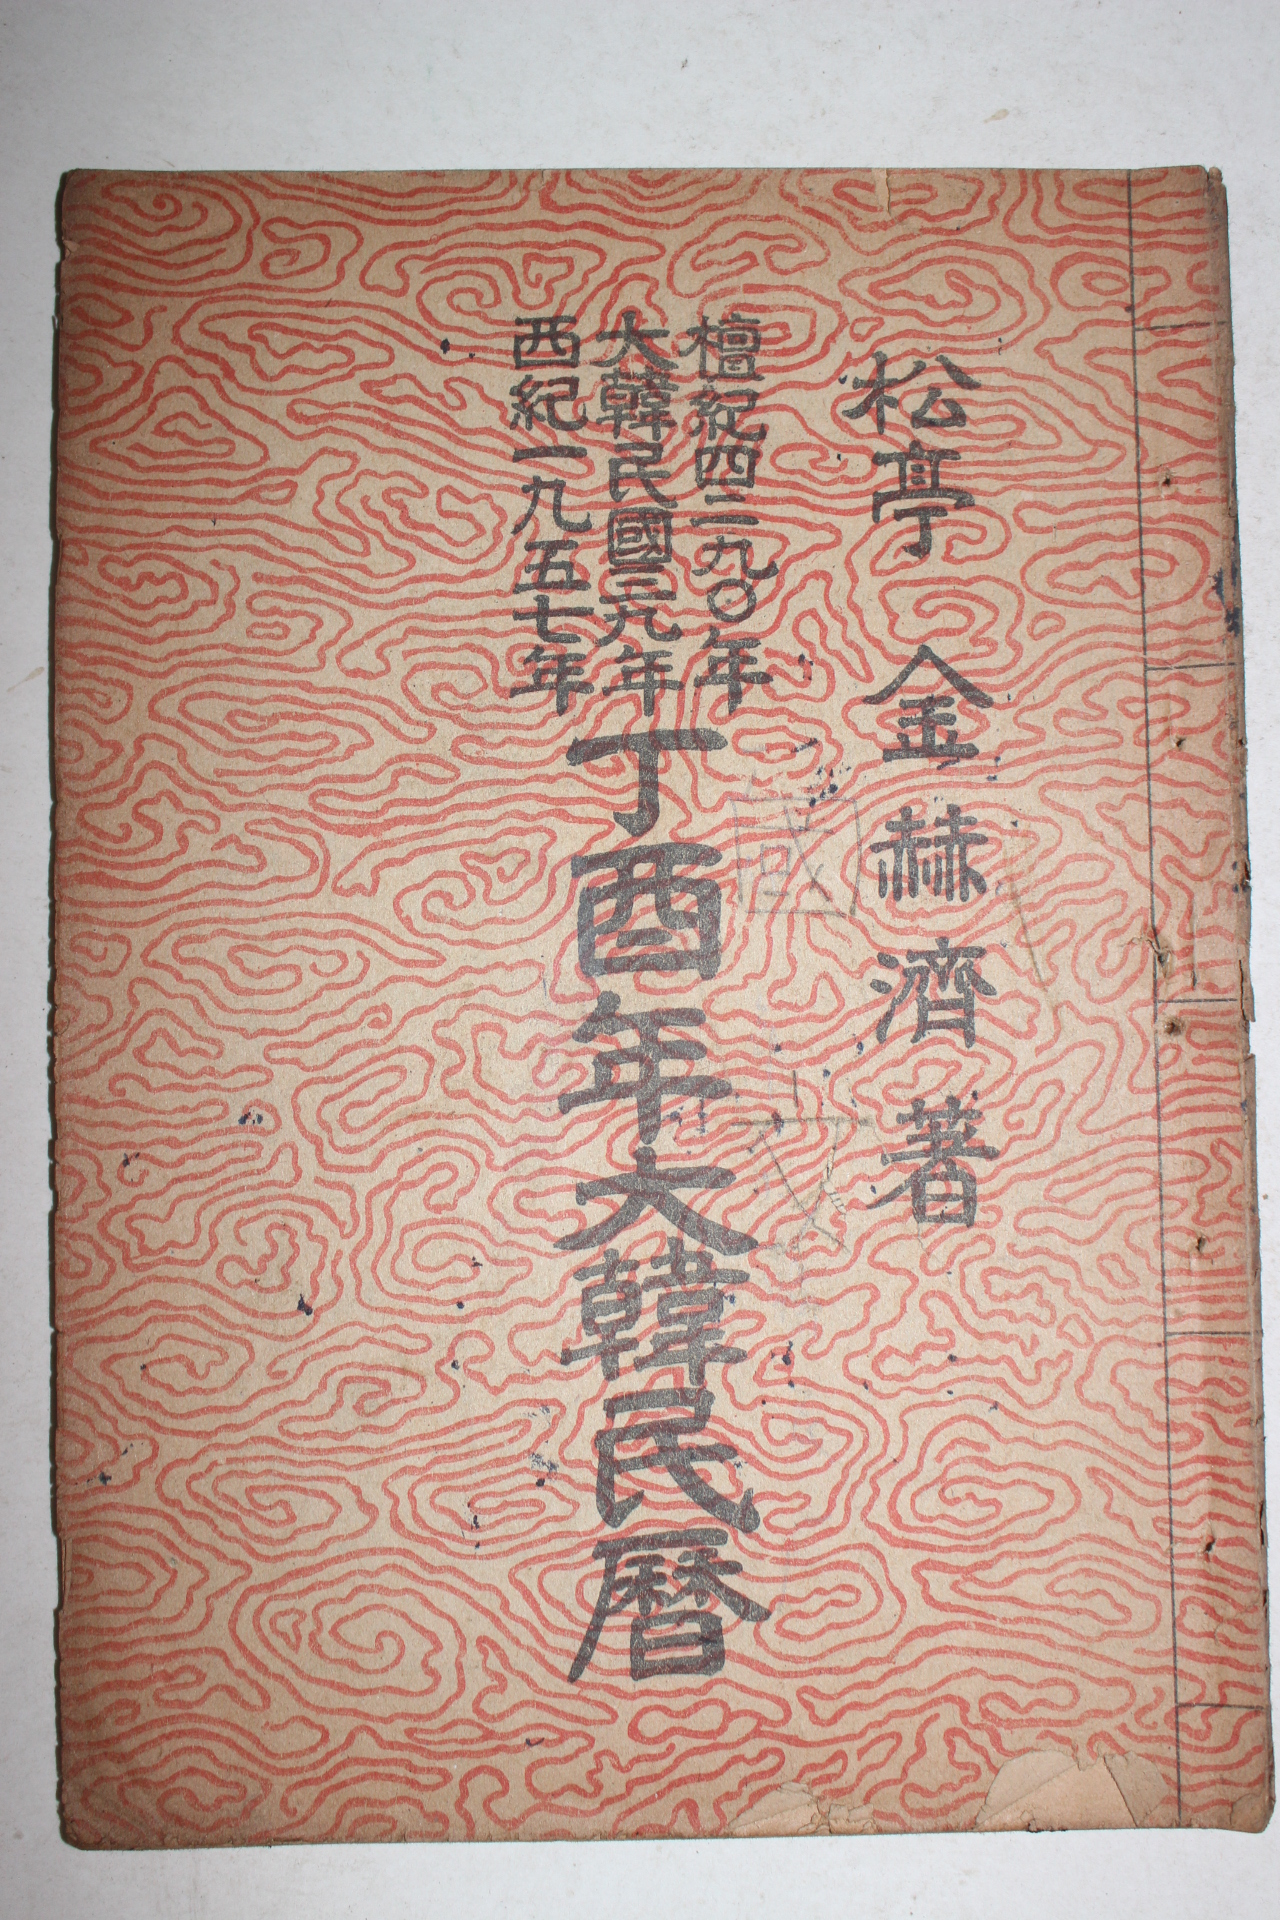 松亭 金赫濟著
檀紀四二九〇年
大韓民國三九年
西紀一九五七年
丁酉年大韓民暦
國文